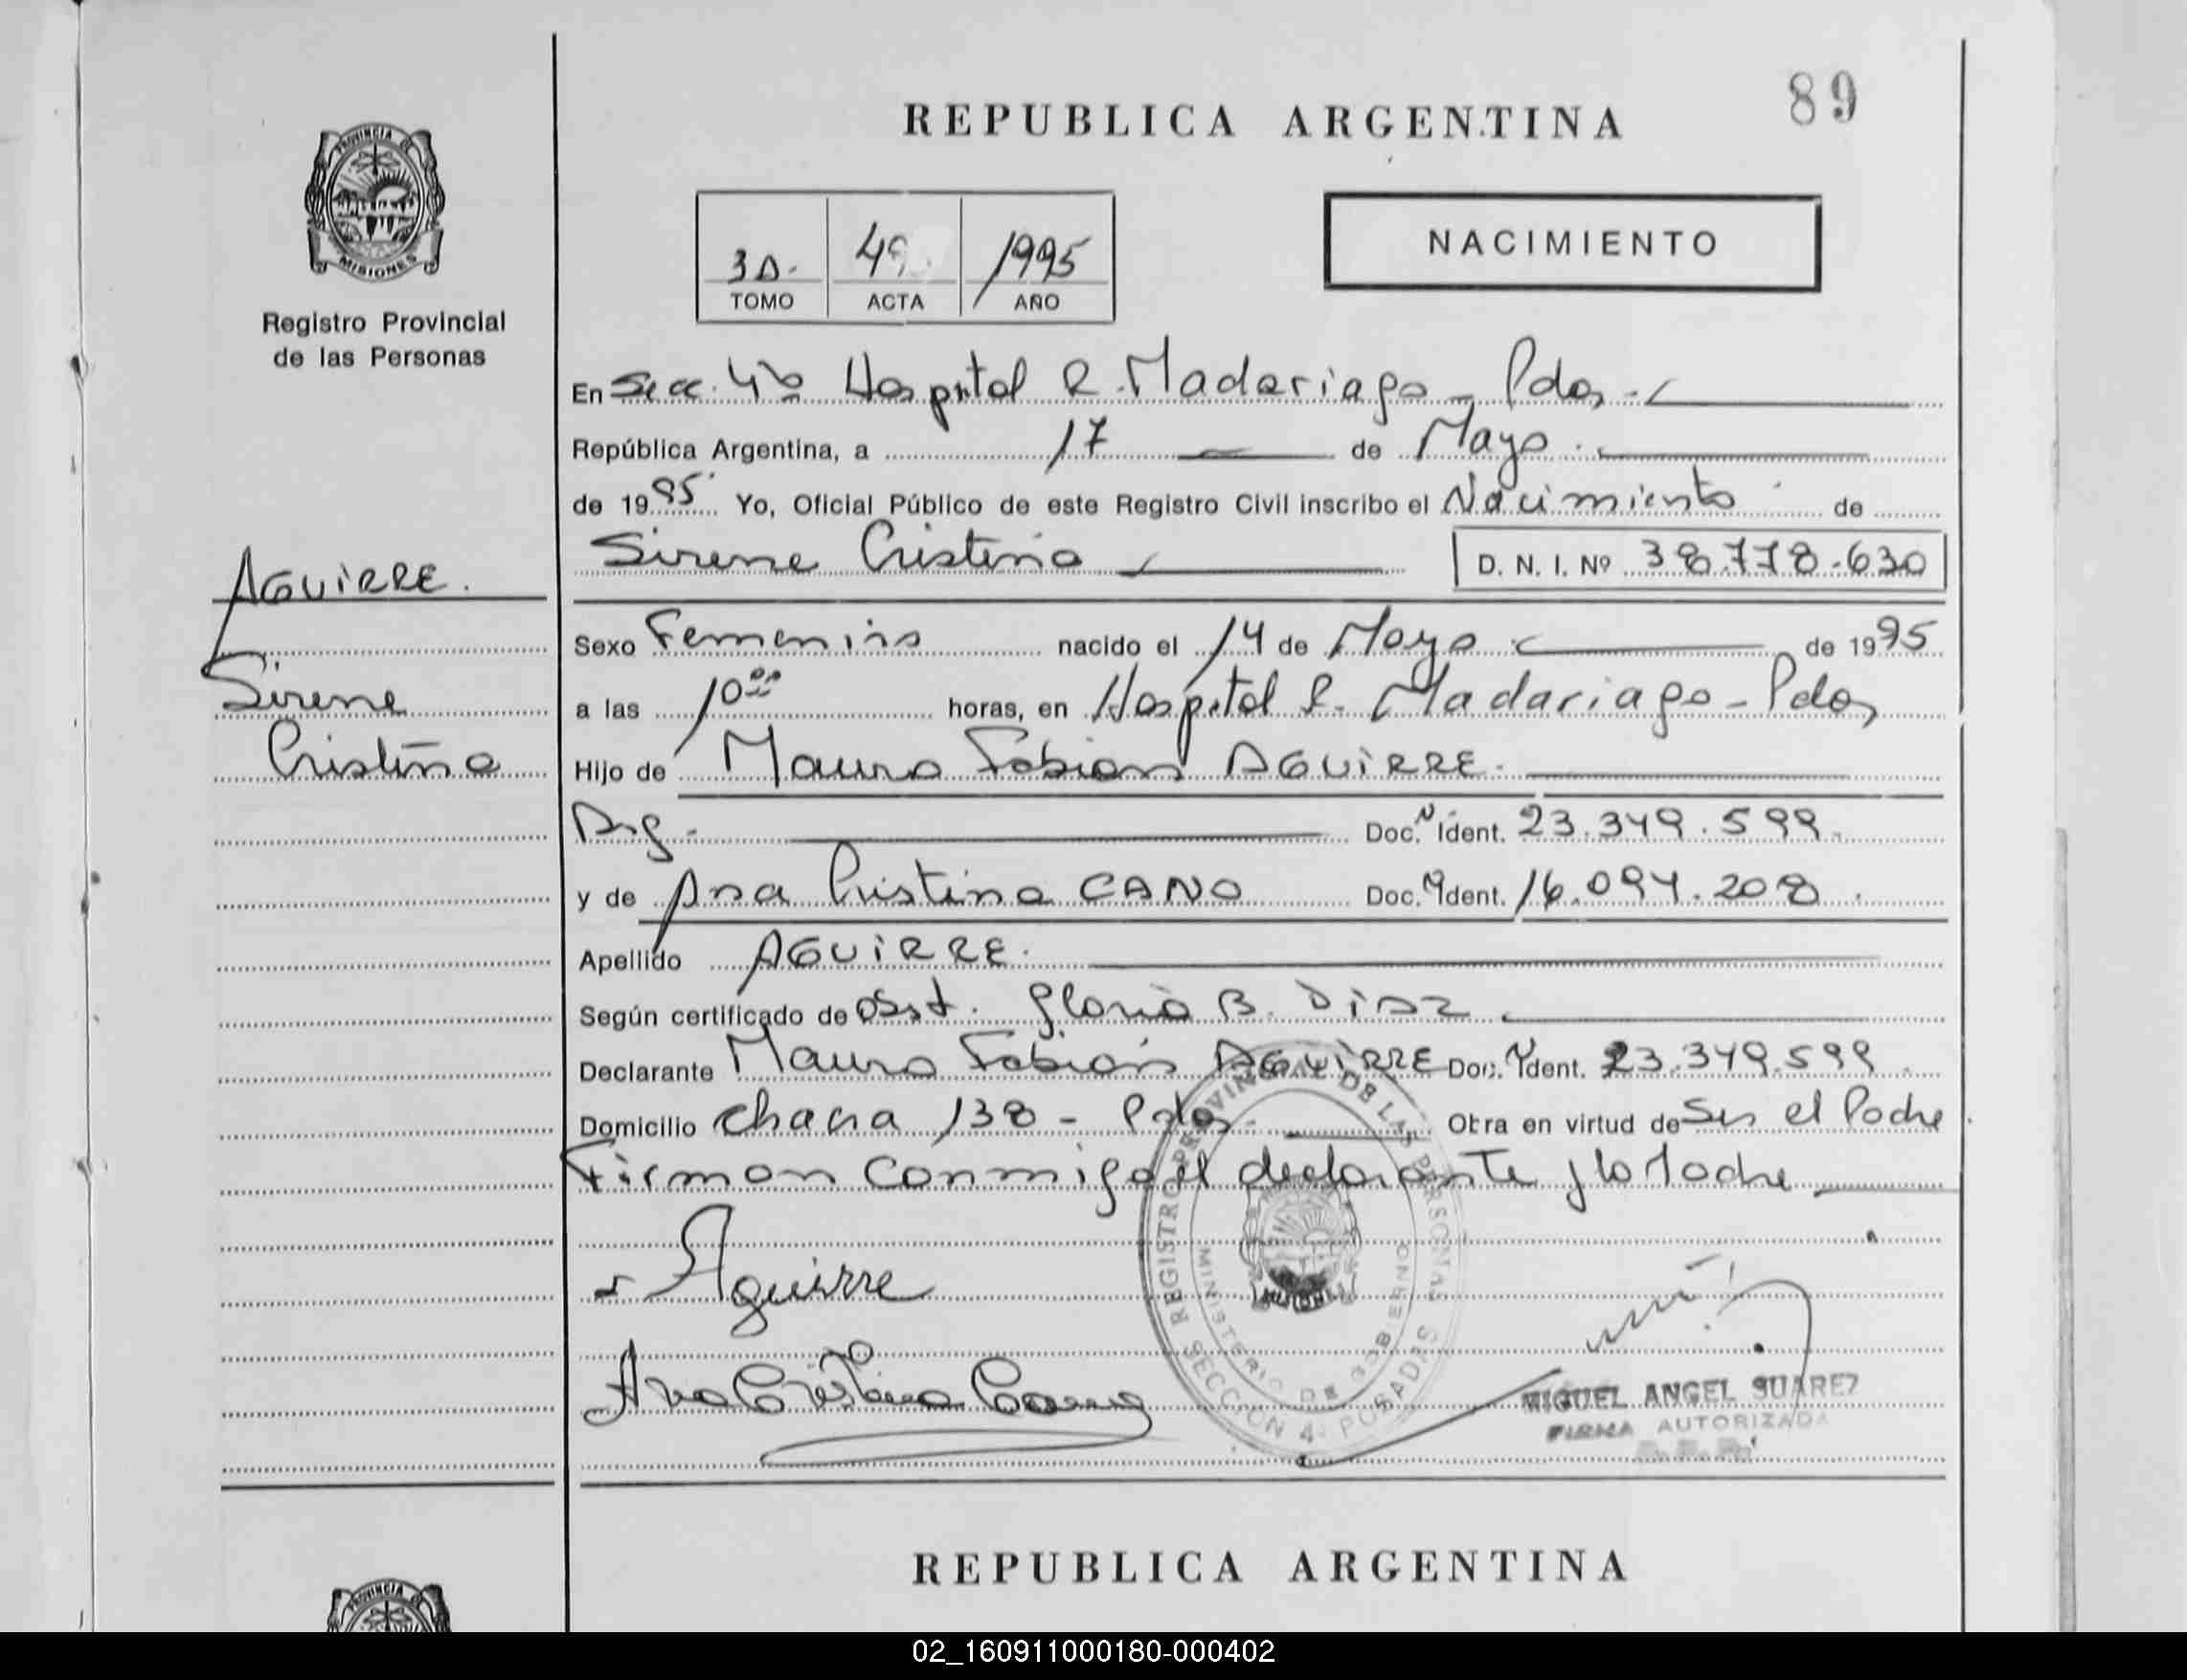 89
REPUBLICA ARGENTINA
PROVINCIA DE
MISIONES
Registro Provincial
de las Personas
NACIMIENTO
3D. 1995
TOMO ACTA AÑO
En Secc. 4ta Hospital R. Madariaga - Pdas.-
República Argentina, a 17 de Mayo
de 1995 Yo, Oficial Público de este Registro Civil inscribo el Nacimiento de
Sirene Cristina D. N. I. Nº 38.778.630
AGUIRRE.
Sirene
Cristina
Sexo Femenino nacido el 14 de Mayo de 1995
a las 10 00 horas, en Hospital R. Madariaga - Pdas
Hijo de Mauro Fabian AGUIRRE.
Arg.- Doc. Ident. 23.349.599.
y de Ana Cristina CANO Doc. Ident. 16.094.208.
Apellido AGUIRRE.
Según certificado de Obst. Gloria B. Diaz
Declarante Mauro Fabian AGUIRRE Doc. Ident. 23.349.599.
Domicilio chacra 138 - Pdas. Obra en virtud de Ser el Padre
Firman conmigo el declarante y la Madre
Aguirre
Ana Cristina Cano
REGISTRO PROVINCIAL DE LAS PERSONAS
MINISTERIO DE GOBIERNO
SECCION 4º POSADAS
MIGUEL ANGEL SUAREZ
FIRMA AUTORIZADA
REPUBLICA ARGENTINA
PROVINCIA
02_160911000180-000402